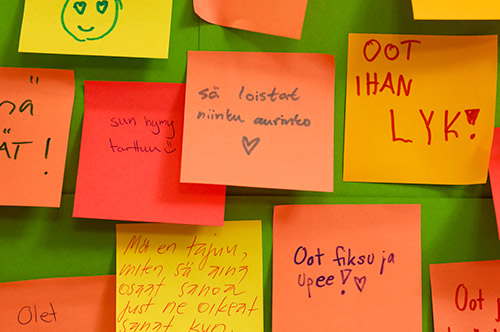 nä
ÄT!
sun hymy
tarttuu
sä loistat
niinku aurinko
OOT
IHAN
LYK!
Olet
Mä en tajuu,
miten sä aina
osaat sanoa
just ne oikeat
sanat kun
Oot fiksu ja
upee!
Oot